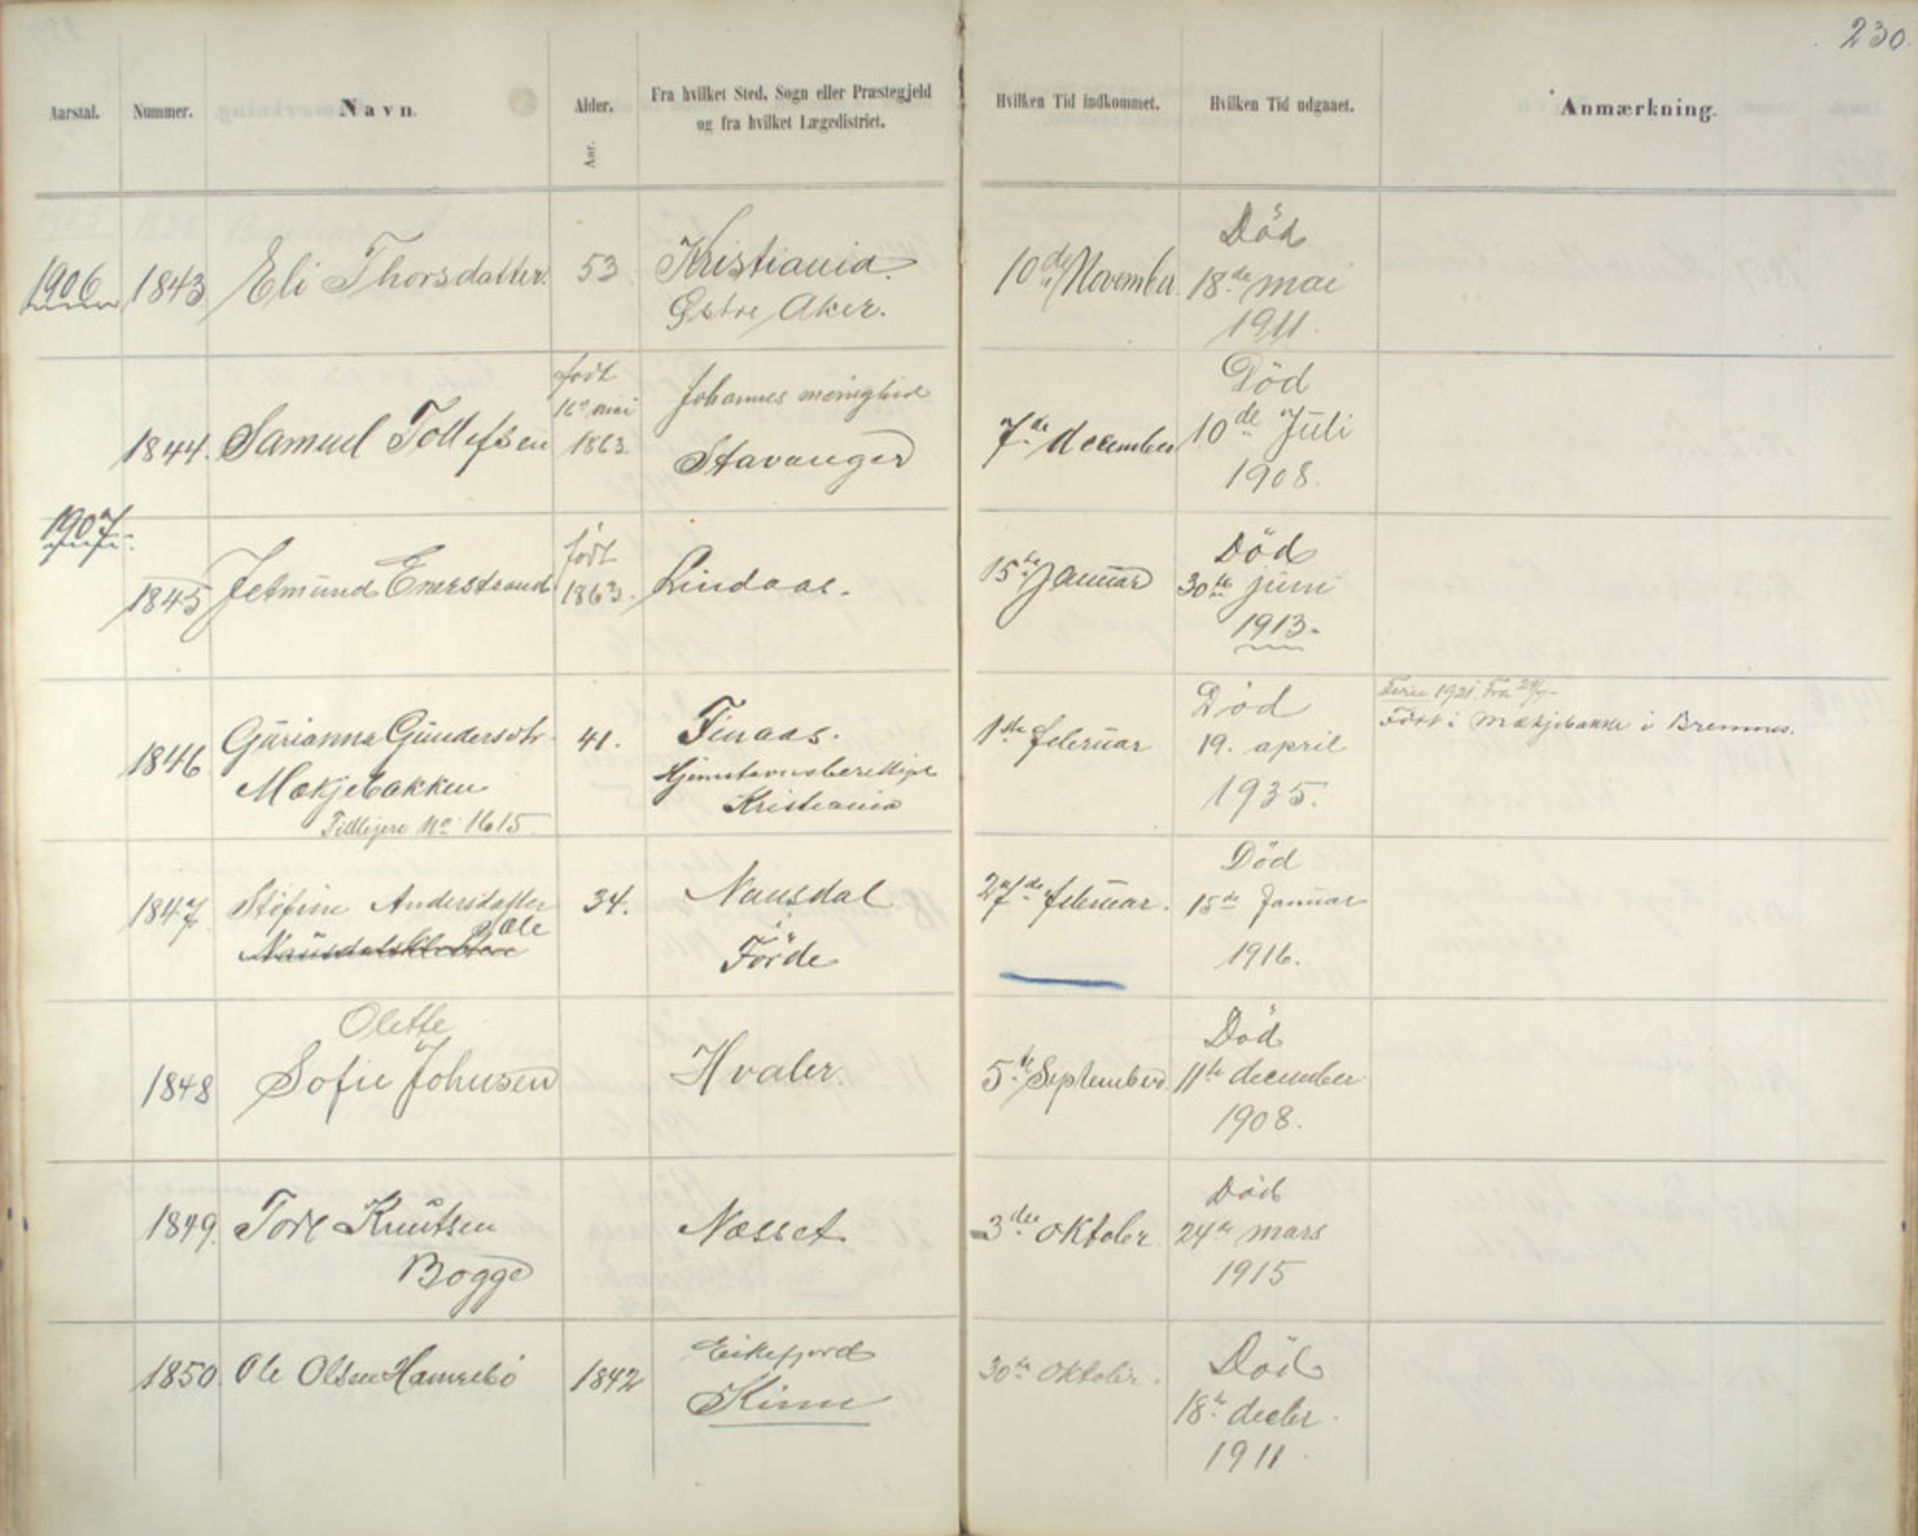 230.
Aarstal.
Nummer.
Navn.
Alder.
Aar.
Fra hvilket Sted, Sogn eller Præstegjeld
og fra hvilket Lægedistrict.
Hvilken Tid indkommet.
Hvilken Tid udgaaet.
Anmærkning.
1906
1843
Eli Thorsdatter.
53
Kristiania.
Østre Aker.
10de November
Død
18de mai
1911.
1844.
Samuel Tollefsen
født
16de mai
1863
Johannes menighed
Stavanger
7de december
Død
10de Juli
1908.
1907.
1845
Jetmund Enerstrand
født
1863.
Lindaas.
15de Januar
Død
30te juni
1913.
1846
Gurianna Gundersdtr
Mækjebakken
Tidligere No 1615.
41.
Finaas.
Hjemstavnsberettiget
Kristiania
1ste februar
Død
19. april
1935.
Ferie 1921 Fra
Født i Mækjebakke i Bremnes.
1847
Stefine Andersdatter
Sæle
34.
Nausdal
Förde
27de februar.
15de Januar
Død
1916.
1848
Olette
Sofie Johnsen
Hvaler.
5te September
Død
11te december
1908.
1849.
Tore Knutsen
Bogge
Næsset
3die oktober
Død
24de mars
1915
1850.
Ole Olsen Hamrebö
1842
Eikefjord
Kinn
30te oktober.
Død
18de decbr.
1911.